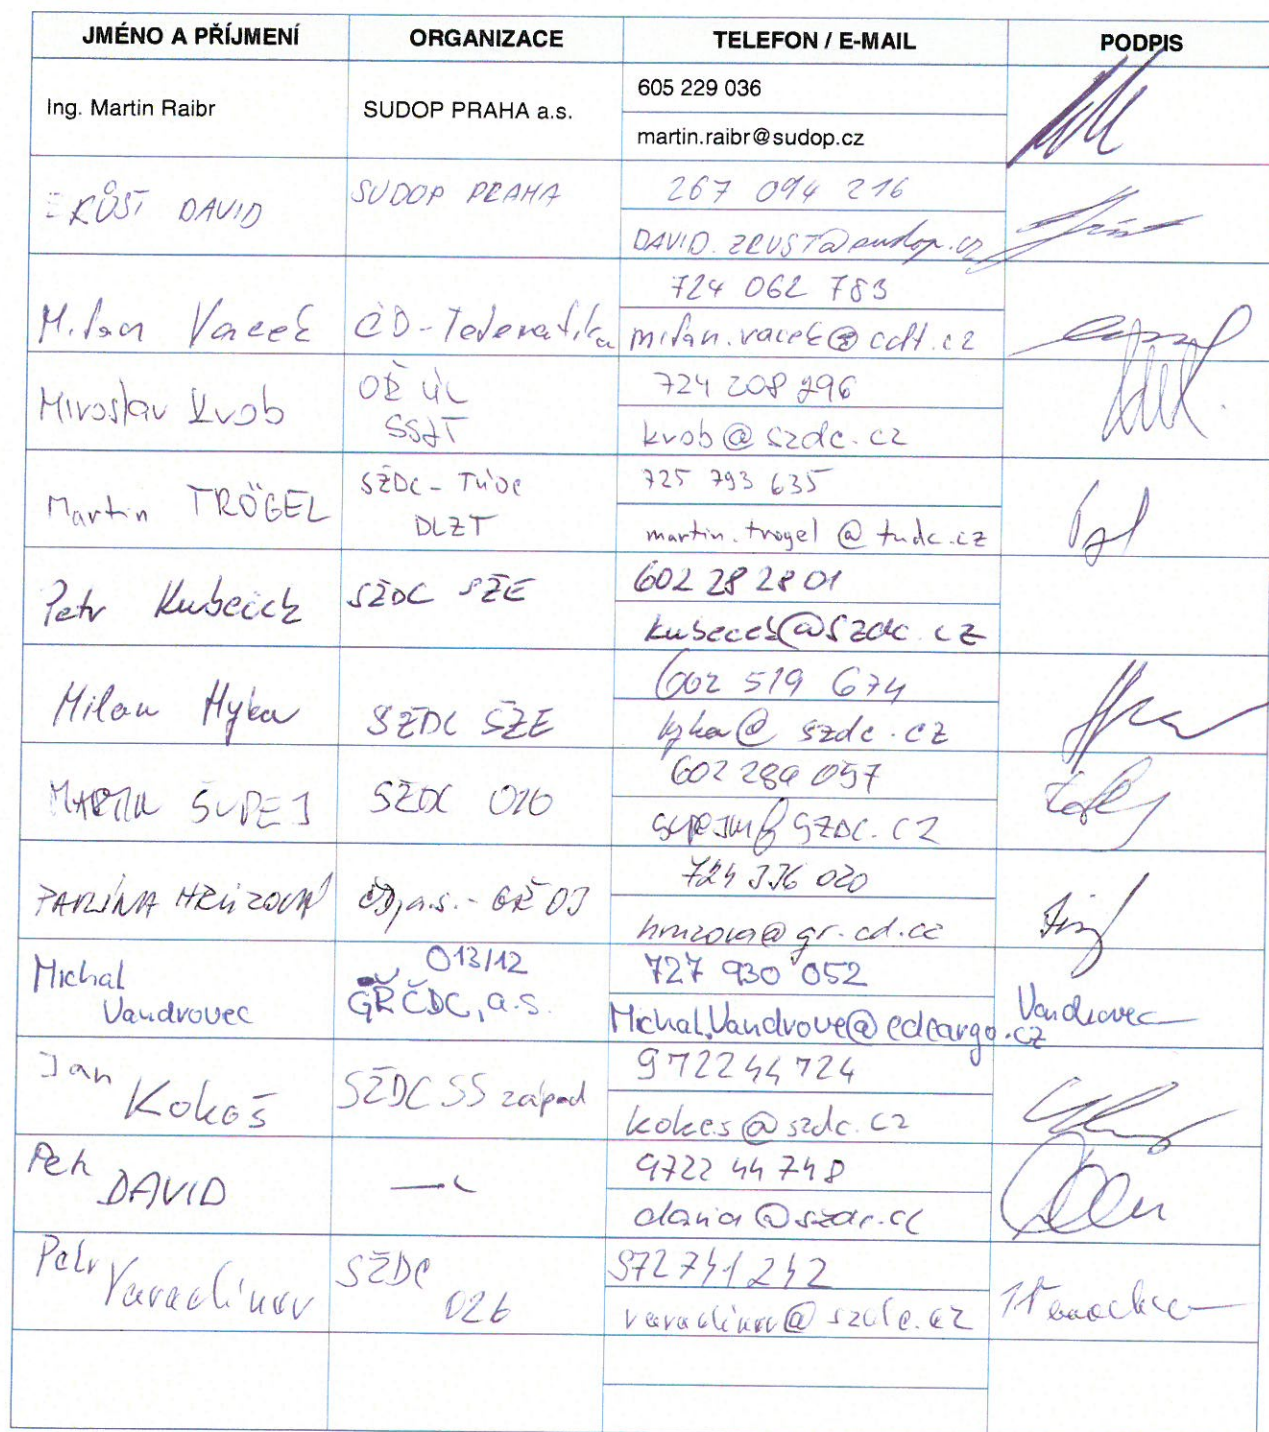 JMÉNO A PŘÍJMENÍ ORGANIZACE TELEFON / E-MAIL PODPIS
Ing. Martin Raibr SUDOP PRAHA a.s. 605 229 036
martin.raibr@sudop.cz
DAVID SUDOP PRAHA 267 094 216
DAVID.ZRUST@sudop.cz
Milan Vacek ČD-Telematika 724 062 783
milan.vacek@cdt.cz
Miroslav Kvob OŘ ÚL 724 208 296
SSZT kvob@szdc.cz
Martin TRÖGEL SŽDC - TÚDC 725 793 635
DLZT martin.trogel@tudc.cz
Petr Kubeček SŽDC SŽE 602 28 28 01
kubecek@szdc.cz
Milan Hyka SŽDC SŽE 602 519 674
hyka@szdc.cz
MARTIN ŠUPEJ SŽDC 602 286 057
supejm@szdc.cz
PAVLÍNA HRŮZOVÁ ČD, a.s. - GŘ 724 336 020
hruzova@gr.cd.cz
Michal 013/12 727 930 052
Vandrovec GŘ ČDC, a.s. Michal.Vandrove@cdcargo.cz Vandrovec
Jan Kokeš SŽDC SS západ 972244724
kokes@szdc.cz
Petr DAVID 9722 44 748
david@szdc.cz
Petr Varadinov SŽDC 972 741 242
026 varadinov@szdc.cz